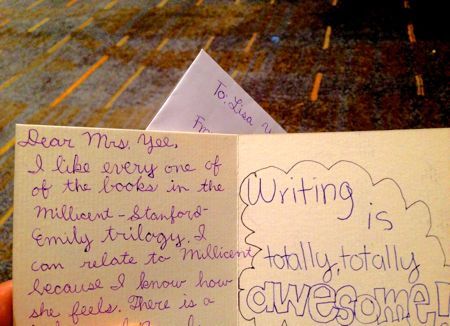 To: Lisa
Dear Mrs. Yee,
I like every one of
of the books in the
Millicent-Stanford-
Emily trilogy. I
can relate to Millicent
because I know how
she feels. There is a
Writing
is
totally, totally
awesome!